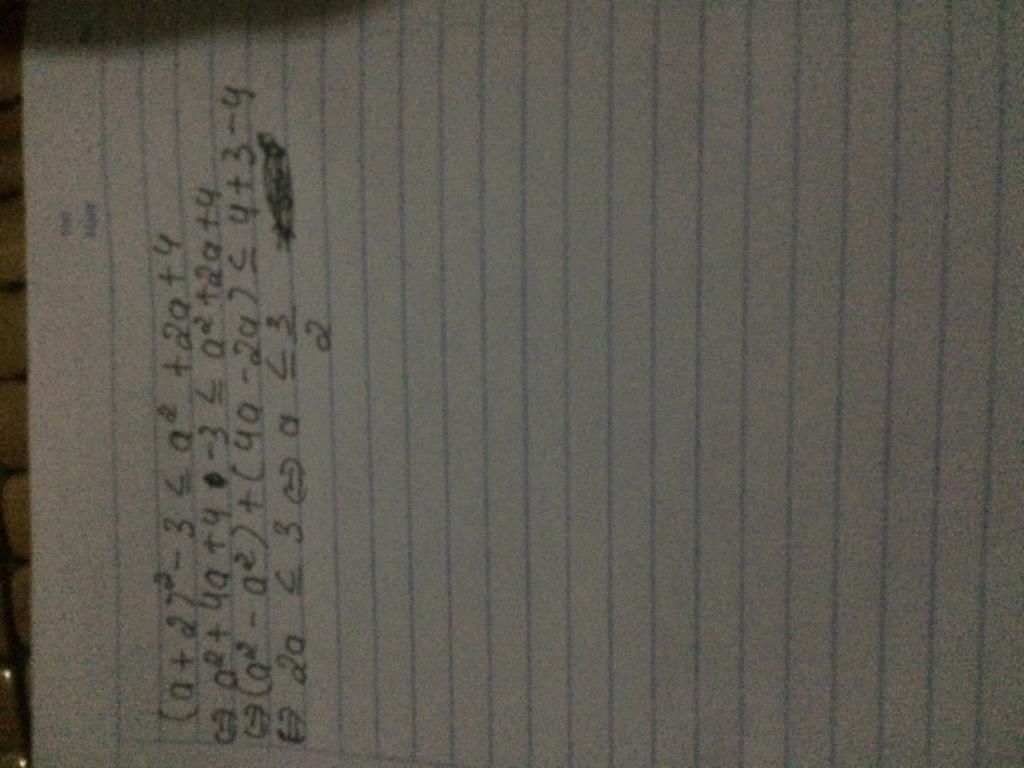 (a+2)² - 3 ≤ a² + 2a + 4
⇔ a² + 4a + 4 - 3 ≤ a² + 2a + 4
⇔ (a² - a²) + (4a - 2a) ≤ 4 + 3 - 4
⇔ 2a ≤ 3 ⇔ a ≤ 3/2